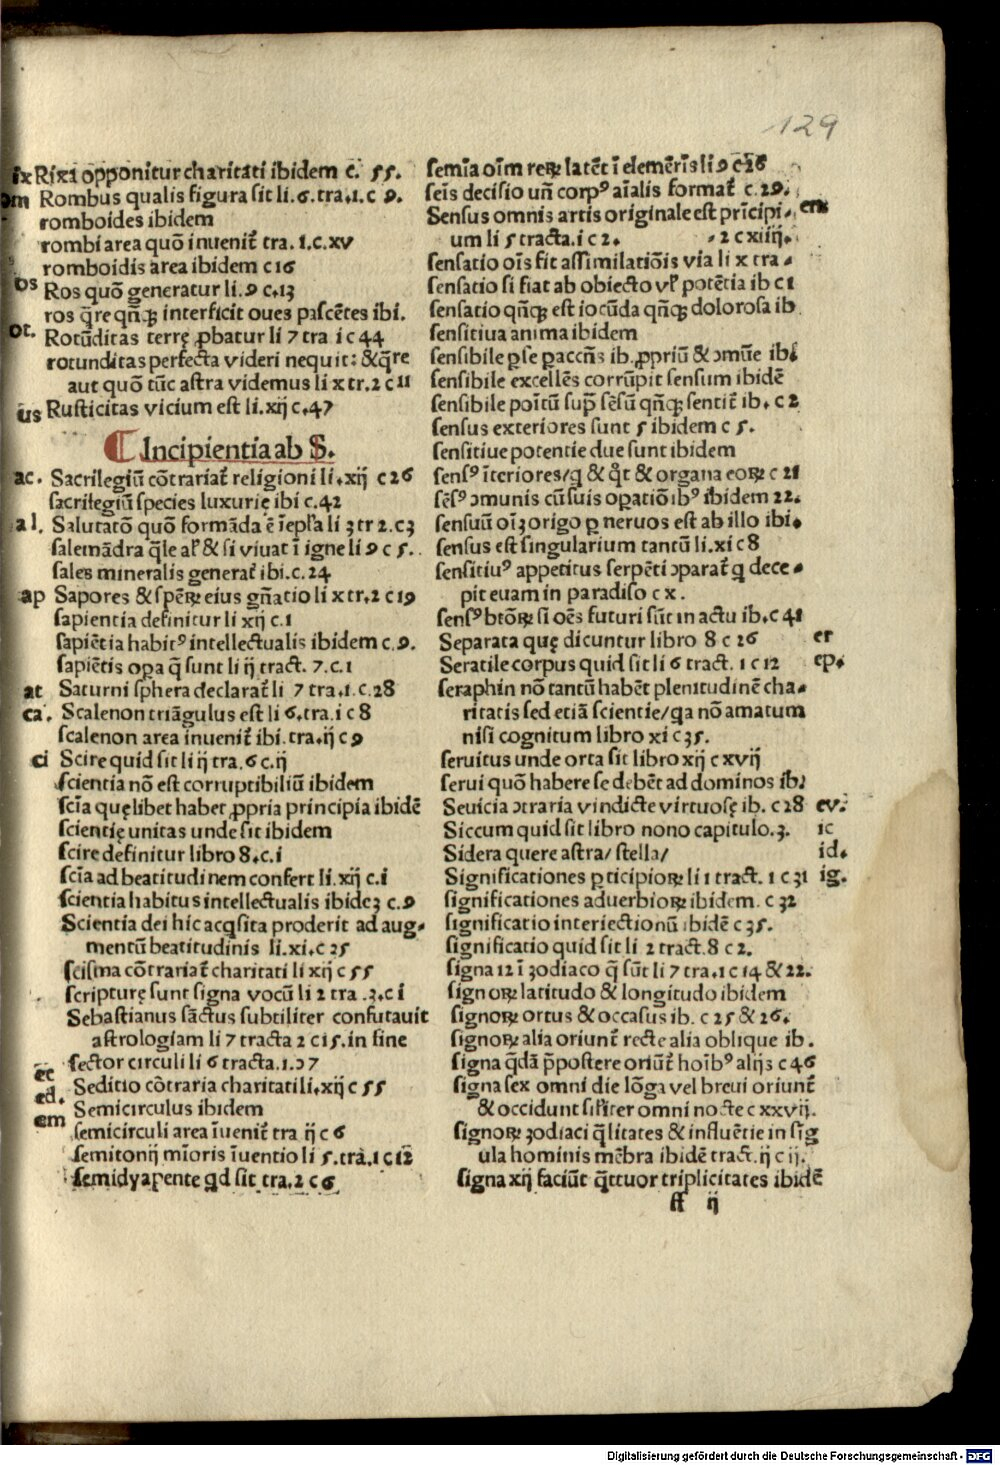 129
ix Rixa opponitur charitati ibidem c̄. 55.
om Rombus qualis figura sit li.6.tra.1.c 9.
romboides ibidem
rombi area quō inuenit̄ tra. 1.c.xv
romboidis area ibidem c 16
os Ros quō generatur li.9 c.13
ros q̄re qn̄qꝫ interficit oues pascētes ibi.
ot. Rotūditas terrę ꝓbatur li 7 tra i c 44
rotunditas perfecta videri nequit: & q̄re
aut quō tūc astra videmus li x tr.2 c 11
us Rusticitas vicium est li.xij c.47
¶ Incipientia ab S.
ac. Sacrilegiū cōtrariat̄ religioni li.xij c 26
sacrilegiū species luxurię ibi c.42
al. Salutatō quō formāda ē ī epl̄a li 3 tr 2.c3
salemādra q̄le al̄ & si viuat ī igne li 9 c 5.
sales mineralis generat̄ ibi.c.24
ap Sapores & spēꝝ eius gn̄atio li x tr.2 c 19
sapientia definitur li xij c.1
sapiētia habitꝰ intellectualis ibidem c.9.
sapiētis oꝑa q̄ sunt li ij tract. 7.c.1
at Saturni sphera declarat̄ li 7 tra.1.c.28
ca. Scalenon triāgulus est li 6.tra.i c 8
scalenon area inuenit̄ ibi.tra.ij c 9
ci Scire quid sit li ij tra.6 c.ij
scientia nō est corruptibiliū ibidem
scīa quęlibet habet ꝓpria principia ibidē
scientię unitas unde sit ibidem
scire definitur libro 8.c.i
scīa ad beatitudinem confert li.xij c.i
scientia habitus intellectualis ibideꝫ c.9
Scientia dei hic acq̄sita proderit ad aug-
mentū beatitudinis li.xi.c 25
scisma cōtrariat̄ charitati li xij c 55
scripturę sunt signa vocū li 2 tra .3.c i
Sebastianus sāctus subtiliter confutauit
astrologiam li 7 tracta 2 c 15.in fine
ec sector circuli li 6 tracta.1.ɔ7
ed. Seditio cōtraria charitati li.xij c 55
em Semicirculus ibidem
semicirculi area īuenit̄ tra ij c 6
semitonij mīoris īuentio li 5.tra.1 c 12
semidyapente qd sit tra.2 c 6
semīa oīm reꝝ latēt ī elemētīs li 9 c 26
seīs decisio un̄ corpꝰ aīalis format̄ c.29.
Sensus omnis artis originale est prīcipi- ens
um li 5 tracta.i c 2. .2 c xiiij.
sensatio oīs fit assimilatiōis via li x tra.
sensatio si fiat ab obiecto vl̄ potētia ib c 1
sensatio qn̄qꝫ est iocūda qn̄qꝫ dolorosa ib
sensitiua anima ibidem
sensibile ꝑ se ꝑ accn̄s ib.ꝓpriū & ɔmūe ibi
sensibile excellēs corrūpit sensum ibidē
sensibile poītū sup̄ sēsū qn̄qꝫ sentit̄ ib.c 2
sensus exteriores sunt 5 ibidem c 5.
sensitiue potentie due sunt ibidem
sensꝰ īteriores/q & q̄t & organa eoꝝ c 21
sēsꝰ ɔmunis cū suis oꝑatiōibꝰ ibidem 22.
sensuū oīꝫ origo ꝑ neruos est ab illo ibi.
sensus est singularium tantū li.xi c 8
sensitiuꝰ appetitus serpēti ɔparat̄ q dece-
pit euam in paradiso c x .
sensꝰ btōꝝ si oēs futuri sūt in actu ib.c 41
Separata quę dicuntur libro 8 c 26 er
Seratile corpus quid sit li 6 tract. 1 c 12 ep.
seraphin nō tantū habēt plenitudinē cha-
ritatis sed etiā scientie/qa nō amatum
nisi cognitum libro xi c 35.
seruitus unde orta sit libro xij c xvij
serui quō habere se debēt ad dominos ibi
Seuicia ɔtraria vindicte virtuosę ib. c 28 ev.
Siccum quid sit libro nono capitulo.3. ic
Sidera quere astra/ stella/ id.
Significationes ꝑticipioꝝ li 1 tract. 1 c 31 ig.
significationes aduerbioꝝ ibidem. c 32
significatio interiectionū ibidē c 35.
significatio quid sit li 2 tract.8 c 2.
signa 12 ī zodiaco q̄ sūt li 7 tra.1 c 14 & 22.
signoꝝ latitudo & longitudo ibidem
signoꝝ ortus & occasus ib. c 25 & 26.
signoꝝ alia oriunt̄ recte alia oblique ib.
signa q̄dā p̄postere oriūt̄ hoībꝰ alijs c 46
signa sex omni die lōga vel breui oriunt̄
& occidunt sīlīter omni nocte c xxvij.
signoꝝ zodiaci q̄litates & influētie in sīg
ula hominis mēbra ibidē tract.ij c ij.
signa xij faciūt q̄ttuor triplicitates ibidē
ff ij
Digitalisierung gefördert durch die Deutsche Forschungsgemeinschaft - DFG